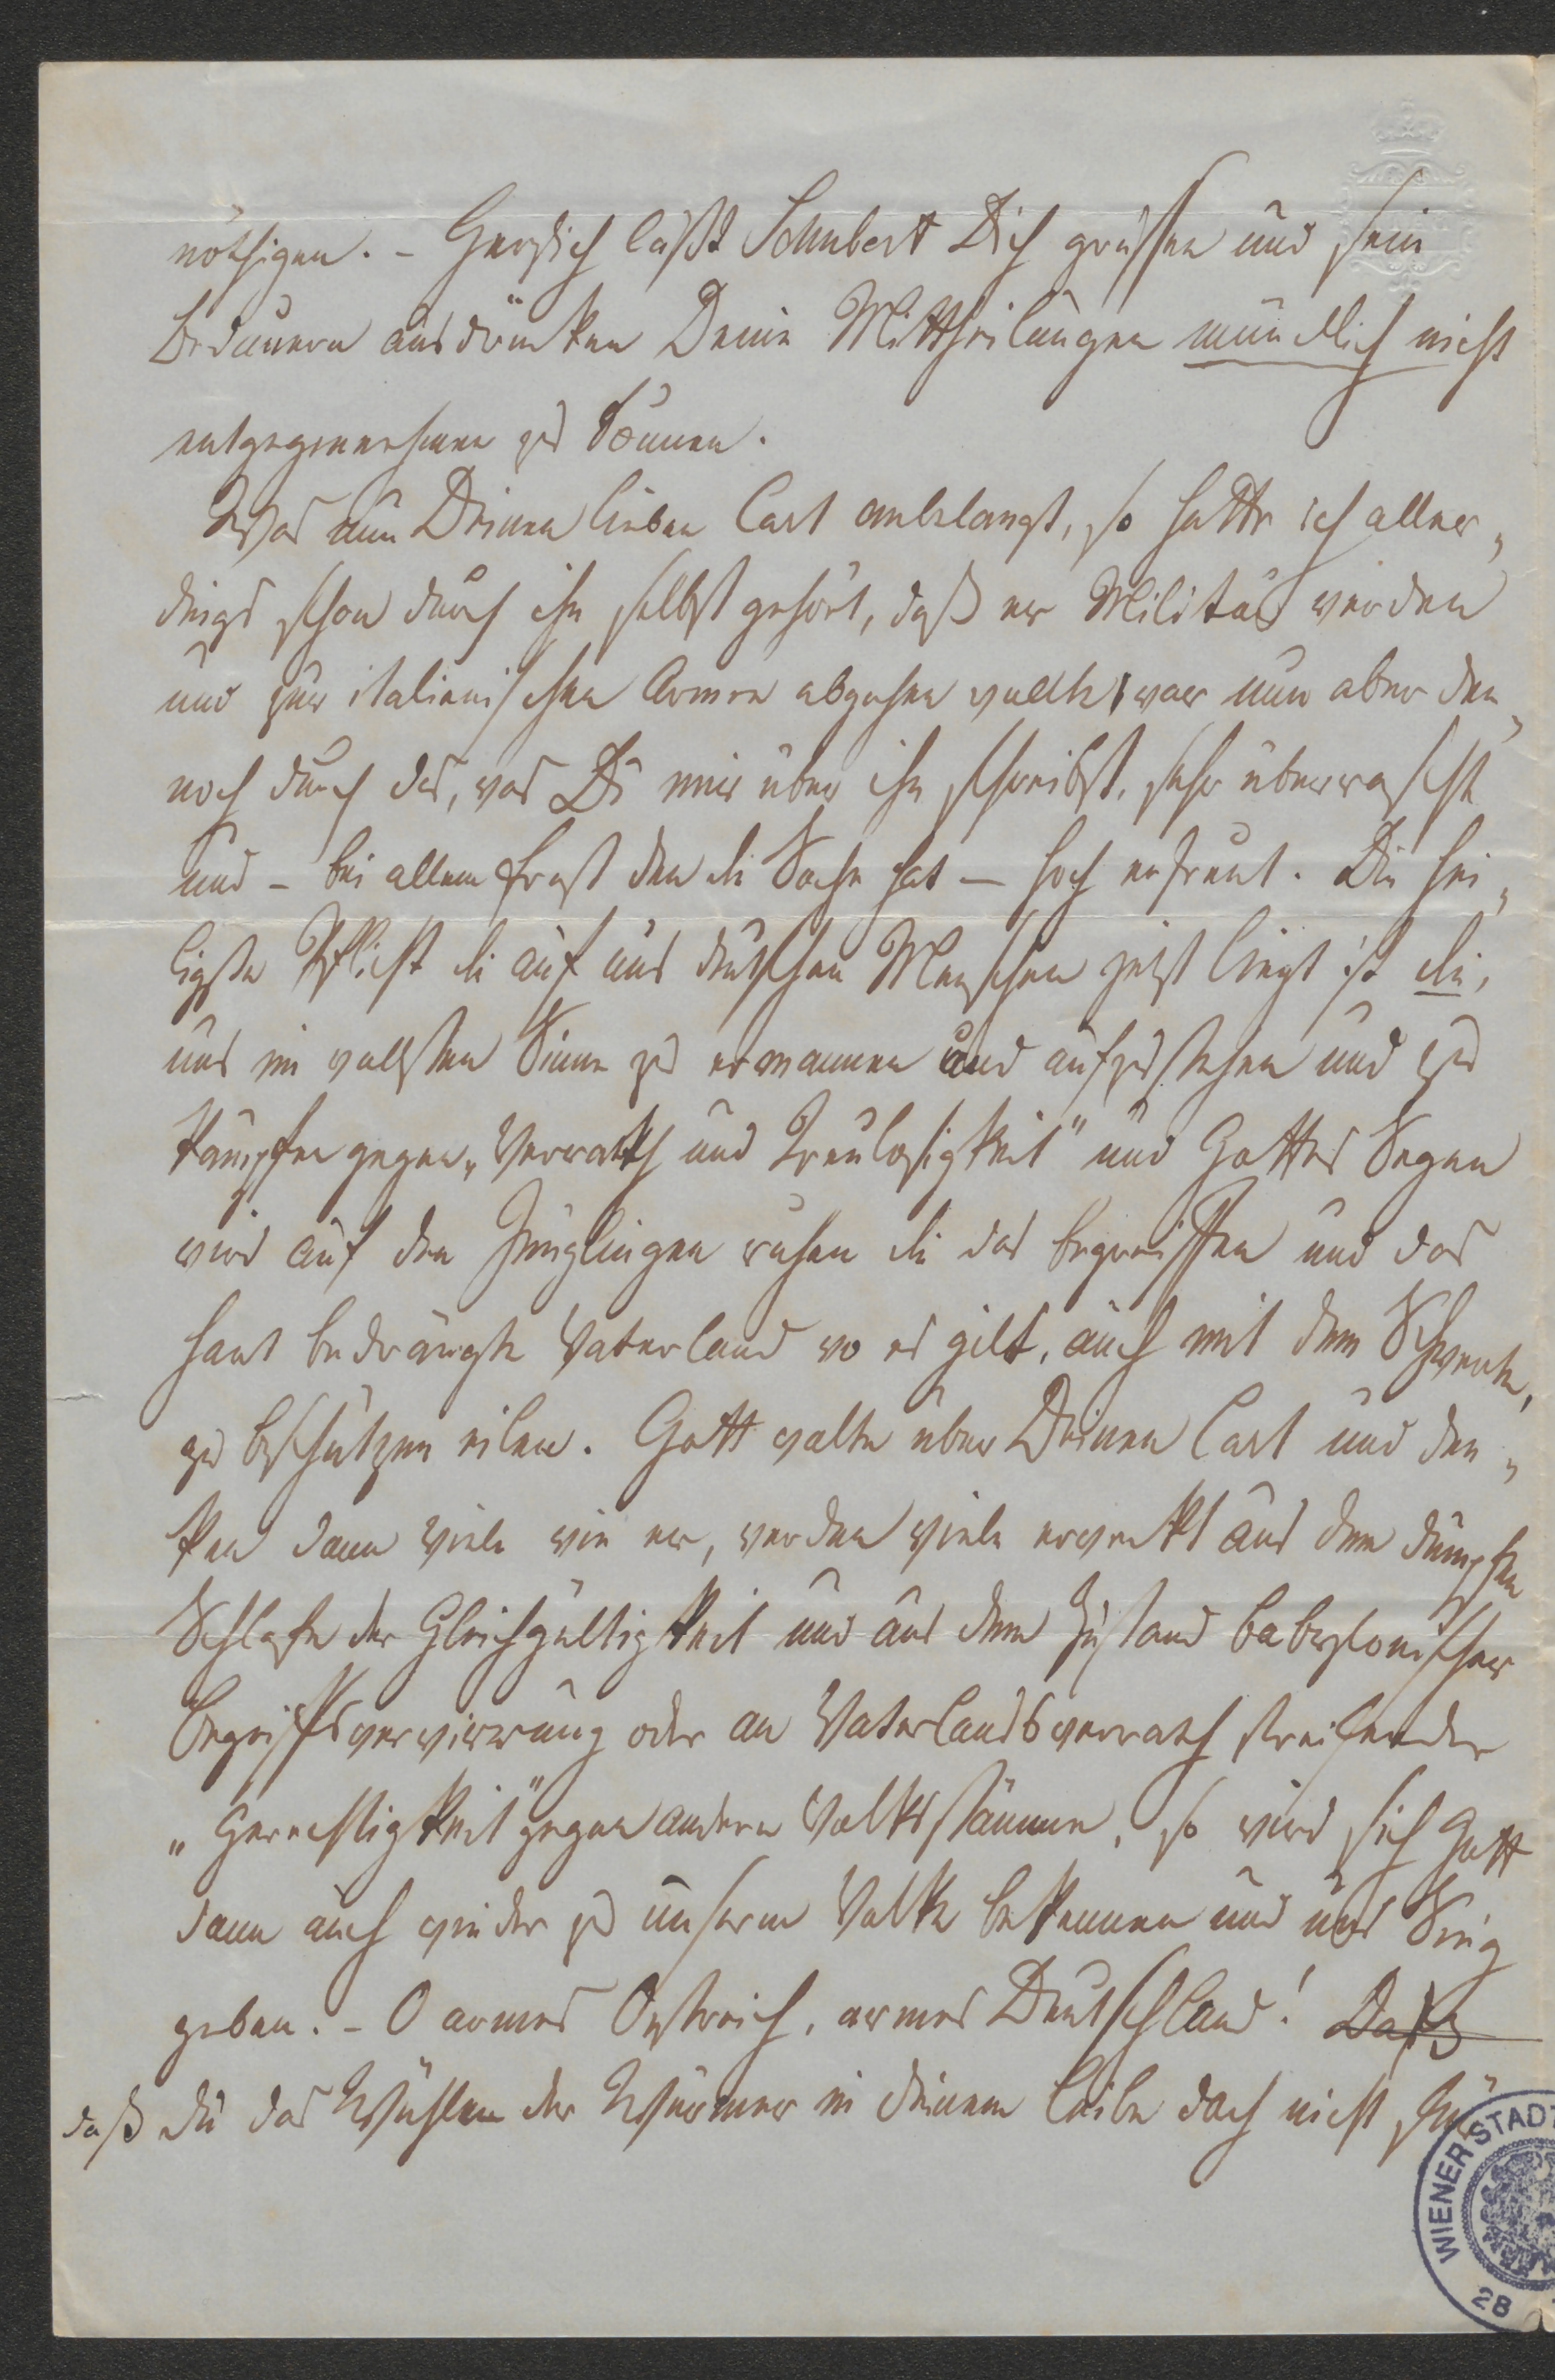 nöthigen. – Herzlich läßt Schubert Dich grüßen und sein
Bedauern ausdrücken Deine Mittheilungen mündlich nicht
entgegennehmen zu können.
Was nun Deinen lieben Carl anbelangt, so hatte ich aller„
dings schon durch ihn selbst gehört, daß er Militär werden
und zur italienischen Armee abgehen wollte, war nun aber den„
noch durch das, was Du mir über ihn schreibst, sehr überrascht
und – bei allem Ernst den die Sache hat – hoch erfreut. Die hei„
ligste Pflicht die auf uns deutschen Menschen jetzt liegt ist die,
uns im vollsten Sinne zu ermannen und aufzustehen und zu
kämpfen gegen „Verrath und Treulosigkeit" und Gottes Segen
wird auf den Jünglingen ruhen die das begreiffen und das
hart bedrängte Vaterland wo es gilt, auch mit dem Schwerte,
zu beschützen eilen. Gott walte über Deinen Carl und den„
ken dann viele wie er, werden viele erweckt aus dem dumpfen
Schlafe der Gleichgültigkeit und aus dem Zustand babylonischer
Begriffsverwirrung oder an Vaterlandsverrath streifender
„Gerechtigkeit" gegen andere Volksstämme, so wird sich Gott
dann auch wieder zu unserm Volke bekennen und uns Sieg
geben. – O armes Oestreich, armes Deutschland! Daß
daß du das Wühlen der Würmer in deinem Leibe doch nicht
WIENER STADT
28